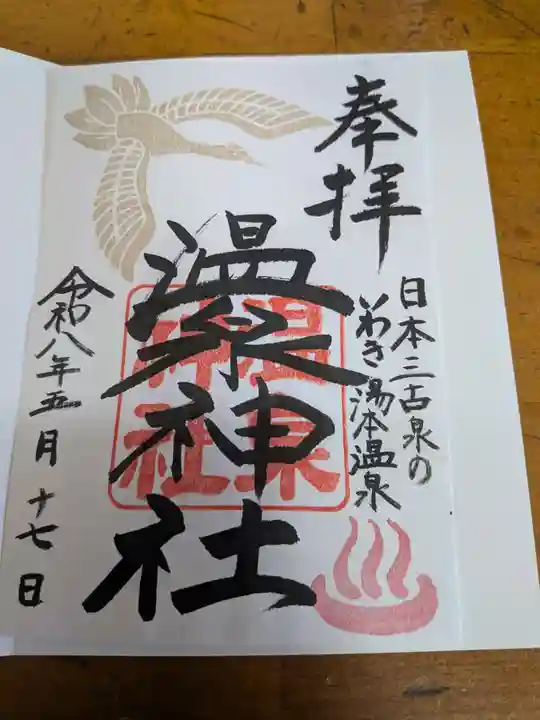 奉拝
日本三古泉の
いわき湯本温泉
温泉神社
温泉神社
令和八年五月十七日